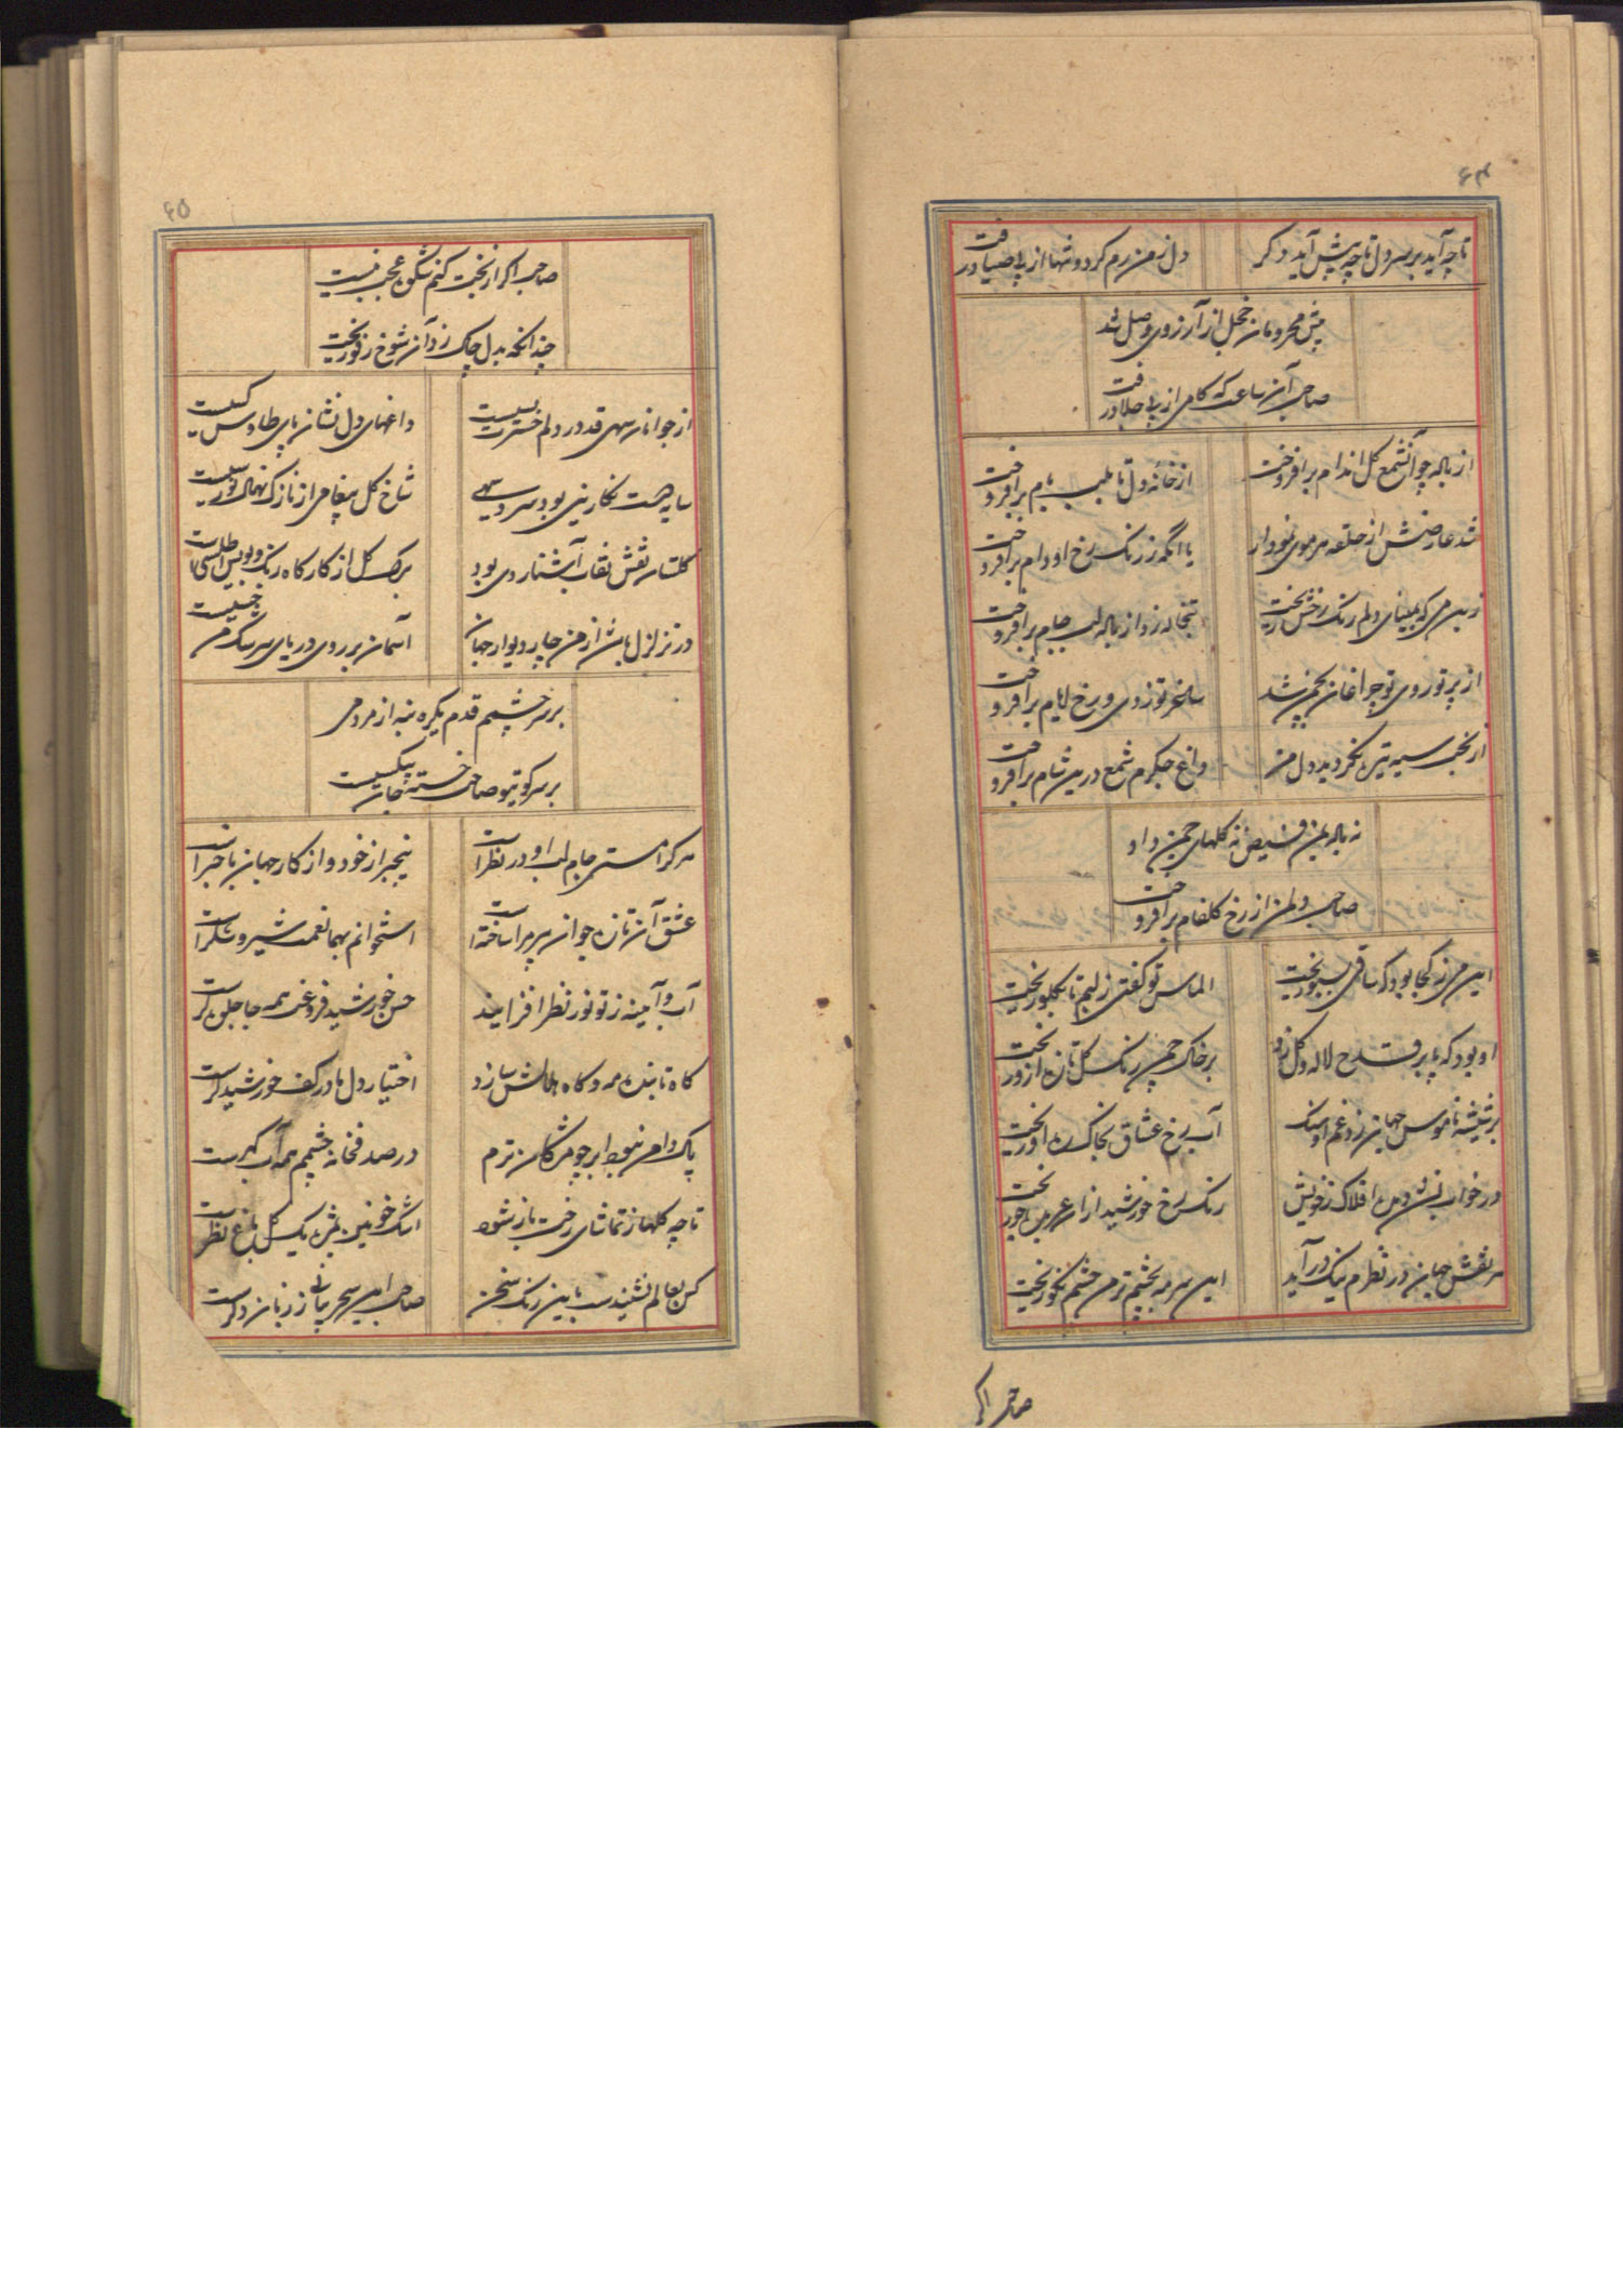 ۶۴
تا چه آید بر سر دل تا چه پیش آید دکر
دل ز من رم کرد و تنها از پی صیاد رفت
پیش محرومان خجل از آرزوی وصل شد
صاحب آن ساعت که کامی از پی جلاد رفت
از باله چو آن شمع کل اندام برافروخت
از خانه دل تا بلب بام برافروخت
شد عارضش از حلقه هر موی نمودار
یا انکه ز رنک رخ او دام برافروخت
زین می که بمینای دلم رنک رخش ریخت
تبخاله زد از باله لب جام برافروخت
از پرتو روی تو چراغان
ساغر تو زدی و رخ ایام برافروخت
از بخت سیه تیره نکردید دل من
داغ جکرم شمع درین شام برافروخت
نه باله بمن فیض نه کلهای چمن داد
صاحب دل من از رخ کلفام برافروخت
این می ز کجا بود که ساقی بسبو ریخت
الماس تو کفتی ز لبم تا بکلو ریخت
او بود که پا بر قدح لاله و کل زد
بر خاک چمن رنک کل تازه ازو ریخت
بر شیشه ناموس جهان زد غم او سنک
آب رخ عشاق بخاک ره او ریخت
در خواب نشد دیده افلاک ز خویش
رنک رخ خورشید از آن عربده جو ریخت
هر نقش جهان در نظرم نیک درآید
این سرمه بچشم تر من چشم نکو ریخت
صاحب اکر
۶۵
صاحب اکر از بخت کنم شکوه عجب نیست
چندانکه بدل چاک زد آن شوخ رفو ریخت
از جوانان سهی قد در دلم حسرت بسیست
داغهای دل نشان پای طاوس کسیست
سایه دست نکارینی بود سرو سهی
شاخ کل پیغامی از نازک نهال نورسیست
کلستان نقش نقاب آشنا روی بود
برک کل از کارکاه رنک و بویش اطلسیست
در تزلزل باشد از من چار دیوار جهان
آسمان بر روی دریای سرشک من خسیست
بر سر چشمم قدم یکره بنه از مردمی
بر سر کوی تو صاحب خسته جان بیکسیست
هر کرا مستی جام لب او در نظر است
بیخبر از خود و از کار جهان با خبر است
عشق آن تازه جوان پیر مرا ساخته است
استخوانم بهما نعمت شیر و شکر است
آب و آیینه ز تو نور نظر افزایند
حسن خورشید فروغت همه جا جلوه کر است
کاه تابنده مه و کاه هلالش سازد
اختیار دل ما در کف خورشید کر است
پاک دامن نبود ابر چو مژکان ترم
در صدفخانه چشمم همه آب کهر است
تا چه کلها ز تماشای رخت باز شود
اشک خونین مژه یک کل باغ نظر است
کس بعالم نشنیدست باین رنک سخن
صاحب این سحر بیانی ز زبان دکر است